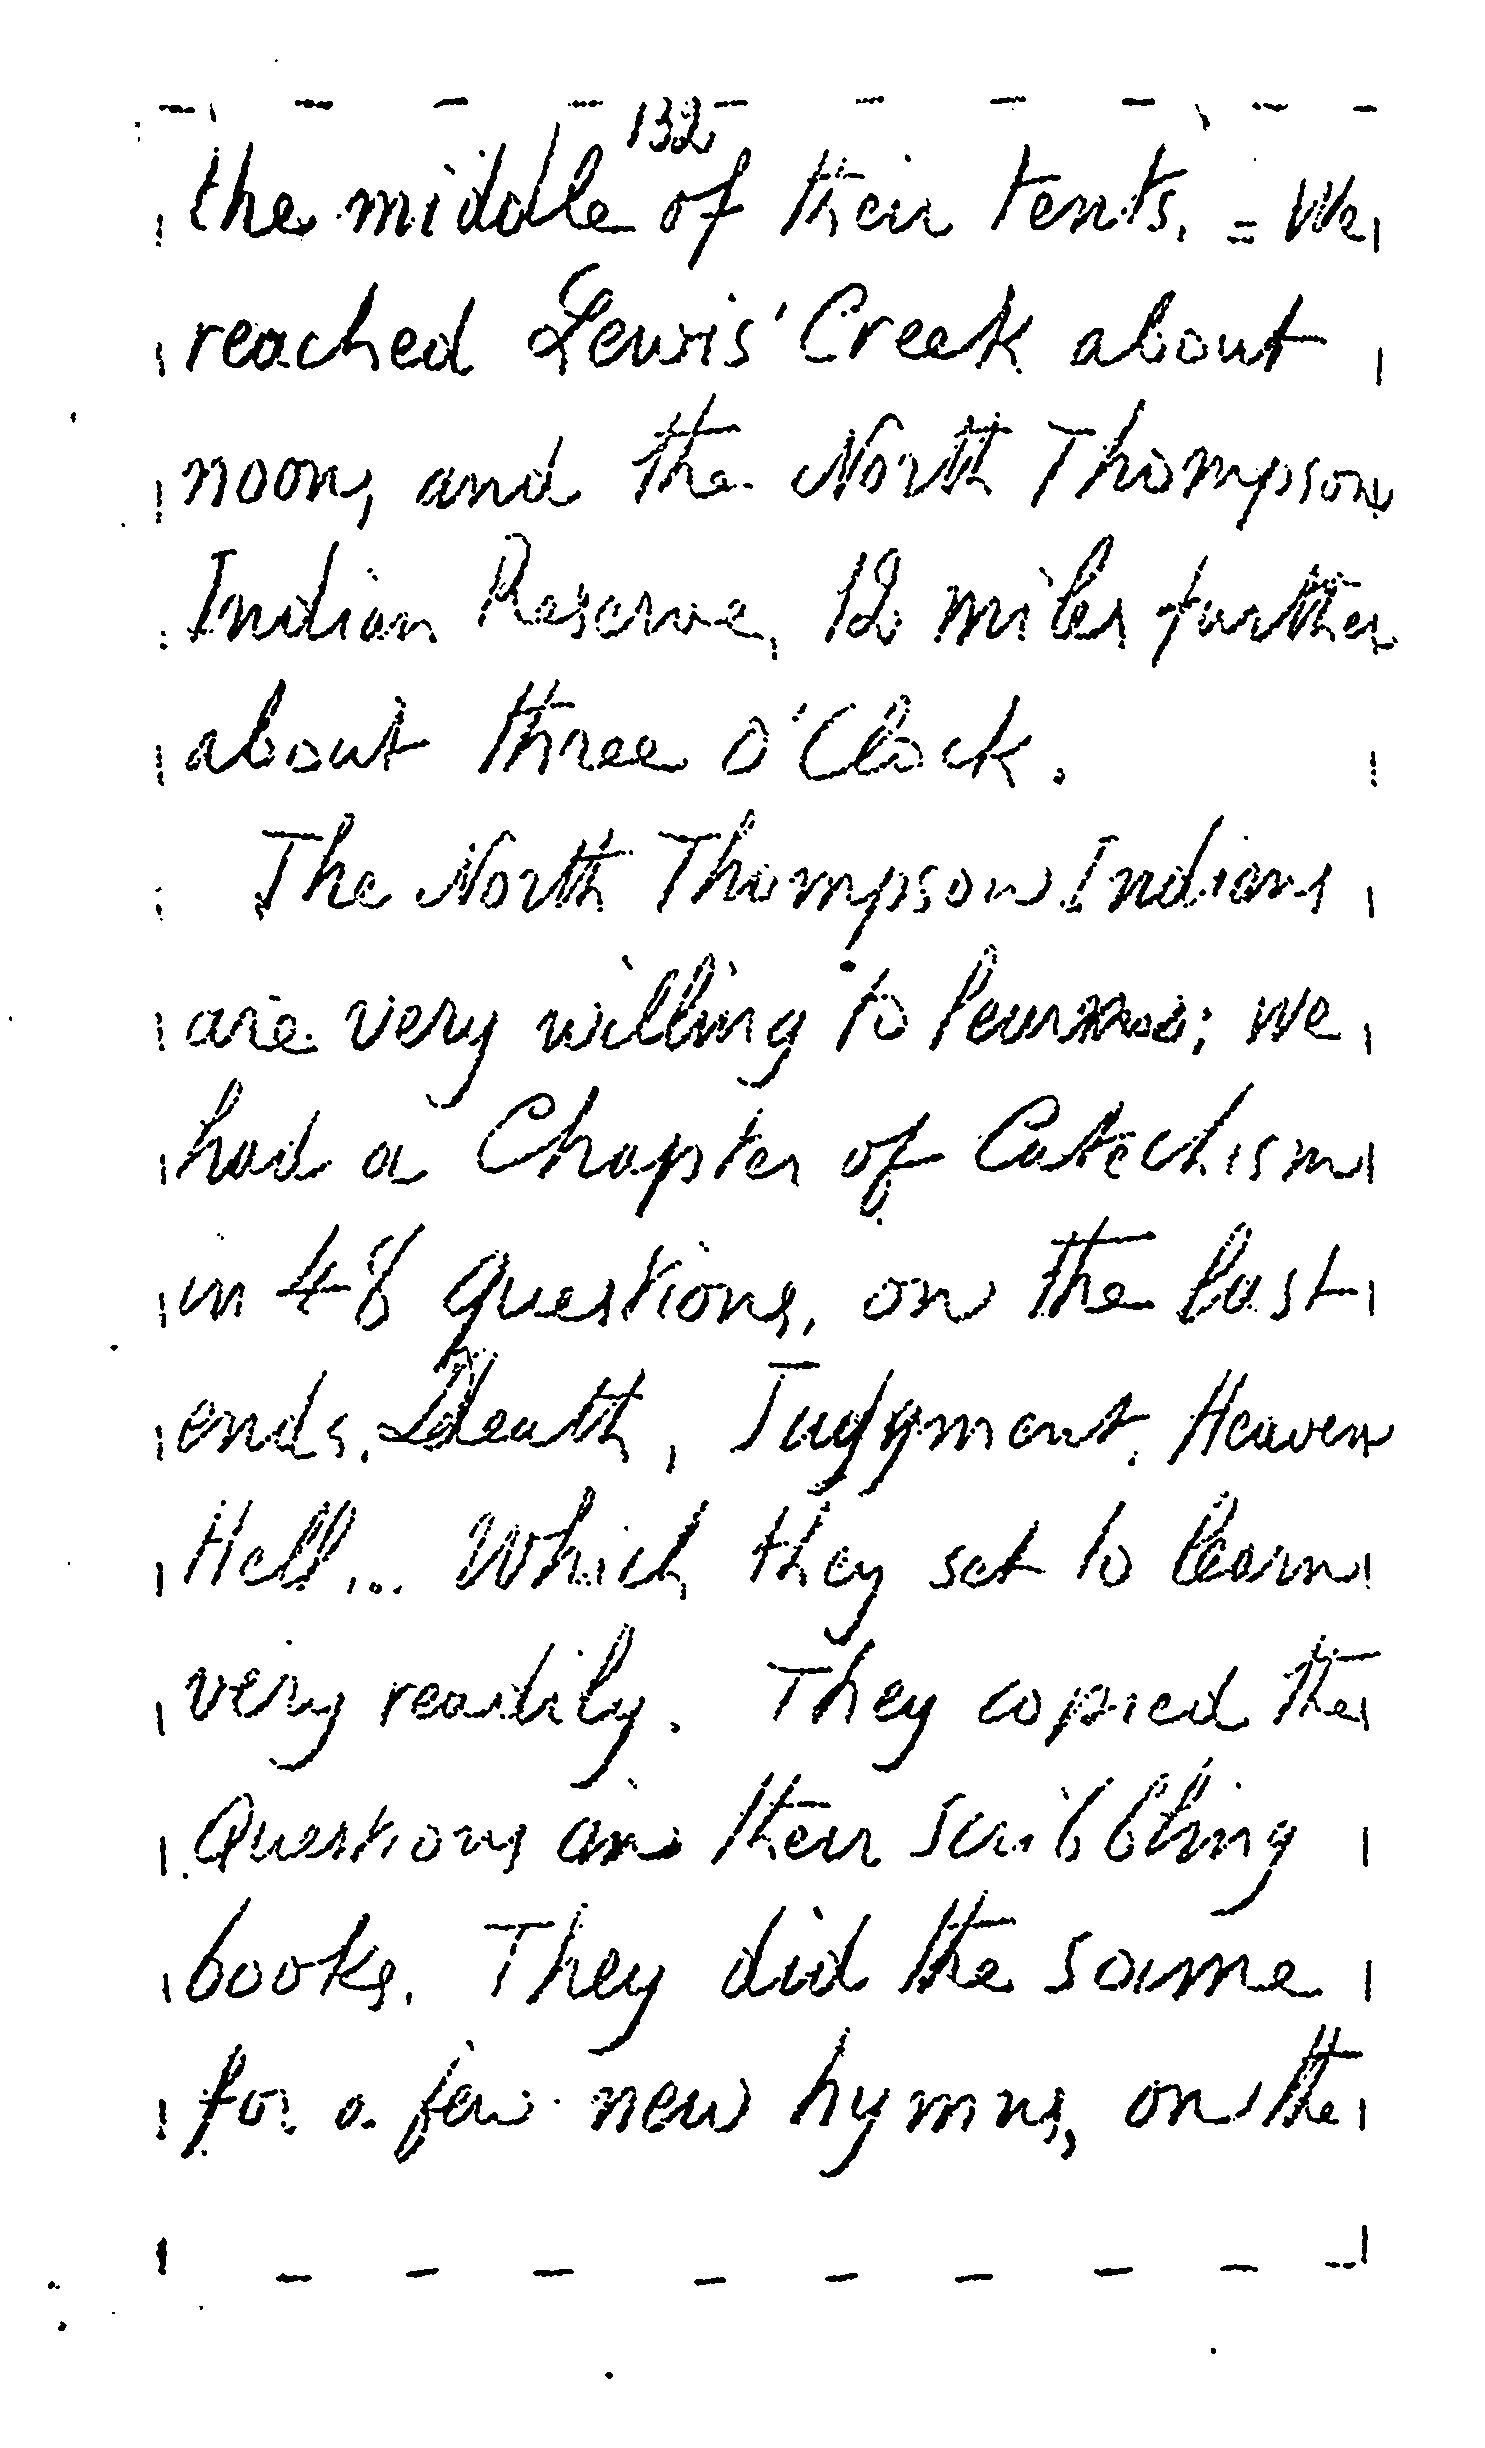 132
the middle of their tents. = We
reached Lewis' Creek about
noon, and the North Thompson
Indian Reserve, 12 miles further
about three O'Clock.
The North Thompson Indians
are very willing to learn; we
had a Chapter of Catechism
in 48 questions, on the last
ends. Death, Judgment, Heaven
Hell... Which they set to learn
very readily. They copied the
Questions in their scribbling
books. They did the same
for a few new hymns, on the